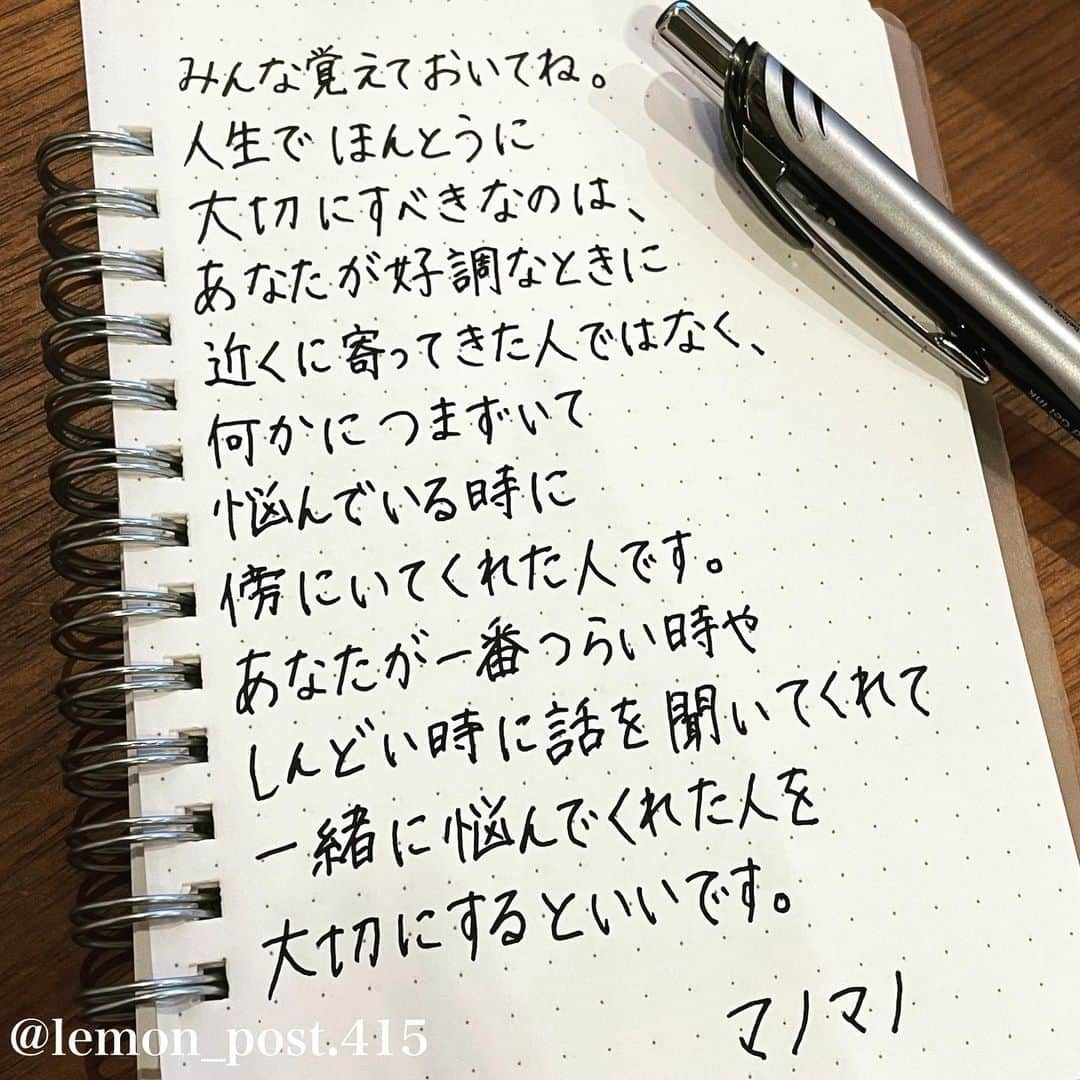 みんな覚えておいてね。
人生でほんとうに
大切にすべきなのは、
あなたが好調なときに
近くに寄ってきた人ではなく、
何かにつまずいて
悩んでいる時に
傍にいてくれた人です。
あなたが一番つらい時や
しんどい時に話を聞いてくれて
一緒に悩んでくれた人を
大切にするといいです。
マノマノ
@lemon_post.415
Gel Ink